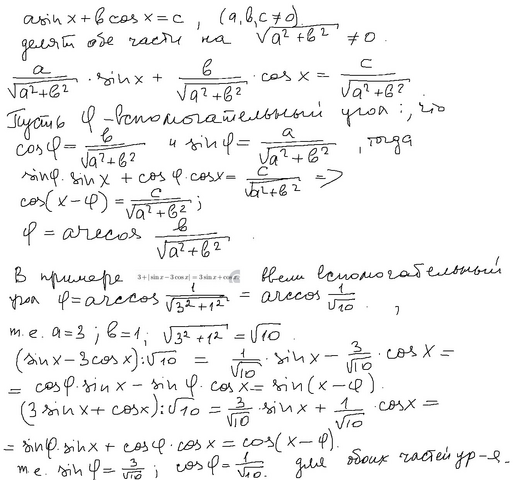 a sin x + b cos x = c , (a, b, c ≠ 0)
делят обе части на √(a²+b²) ≠ 0.
a/√(a²+b²) · sin x + b/√(a²+b²) · cos x = c/√(a²+b²)
Пусть φ - вспомогательный угол :, что
cos φ = b/√(a²+b²) и sin φ = a/√(a²+b²) , тогда
sin φ · sin x + cos φ · cos x = c/√(a²+b²) =>
cos(x-φ) = c/√(a²+b²) ;
φ = arccos b/√(a²+b²) .
В примере 3+|sin x − 3 cos x| = 3 sin x + cos x ввели вспомогательный
угол φ = arccos 1/√(3²+1²) = arccos 1/√10 . ,
т.е. a=3 ; b=1, √(3²+1²) = √10 .
(sin x - 3 cos x) : √10 = 1/√10 · sin x - 3/√10 · cos x =
= cos φ · sin x - sin φ · cos x = sin(x-φ) .
(3 sin x + cos x) : √10 = 3/√10 · sin x + 1/√10 · cos x =
= sin φ · sin x + cos φ · cos x = cos(x-φ).
т.е. sin φ = 3/√10 ; cos φ = 1/√10 . для обоих частей ур-я.